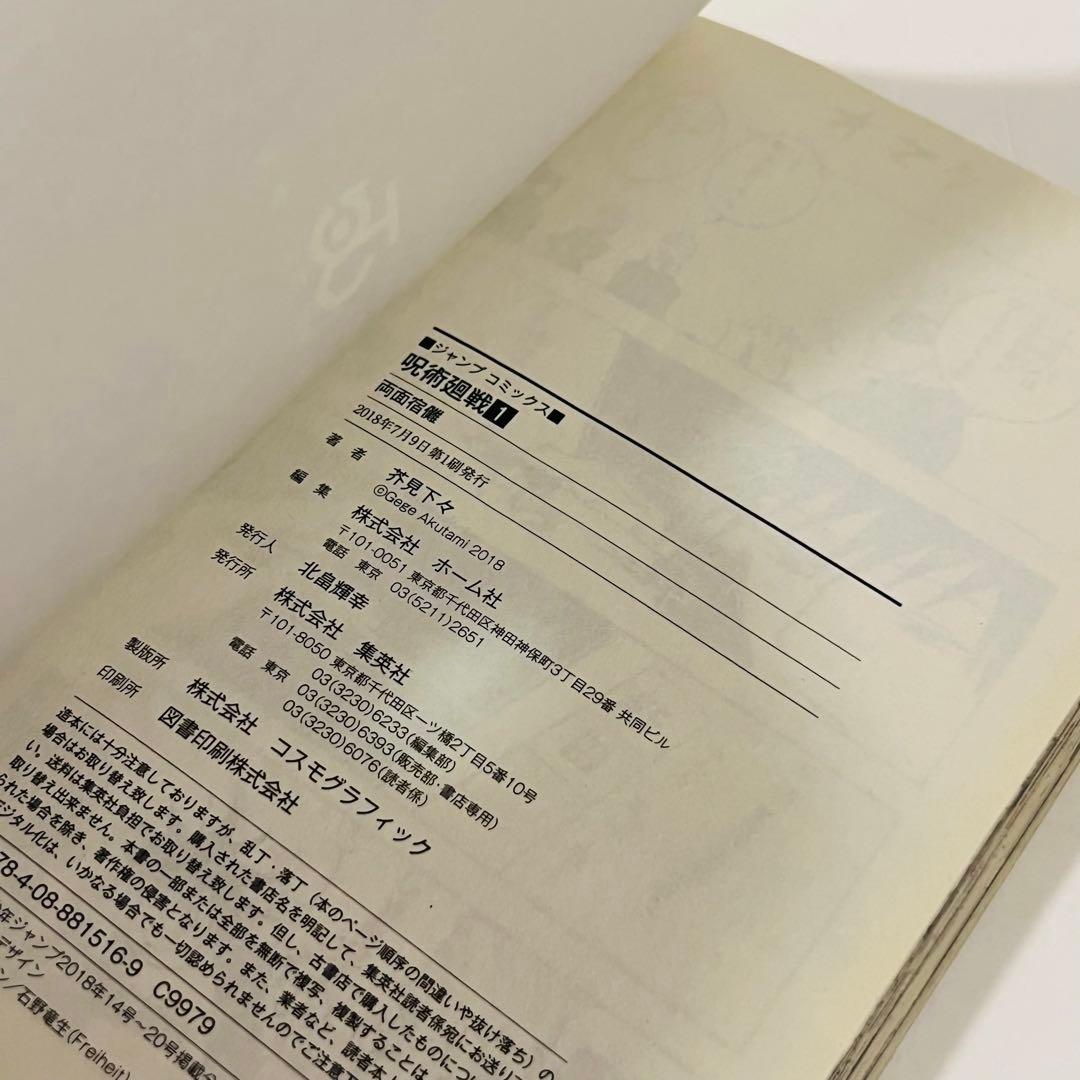 ■ジャンプ コミックス■
呪術廻戦 1
両面宿儺
2018年7月9日 第1刷発行
著者 芥見下々
©Gege Akutami 2018
編集 株式会社 ホーム社
〒101-0051 東京都千代田区神田神保町3丁目29番 共同ビル
電話 東京 03(5211)2651
発行人 北畠輝幸
発行所 株式会社 集英社
〒101-8050 東京都千代田区一ツ橋2丁目5番10号
電話 東京 03(3230)6233(編集部)
03(3230)6393(販売部・書店専用)
03(3230)6076(読者係)
製版所 株式会社 コスモグラフィック
印刷所 図書印刷株式会社
造本には十分注意しておりますが、乱丁・落丁(本のページ順序の間違いや抜け落ち)の
場合はお取り替え致します。購入された書店名を明記して、集英社読者係宛にお送り下
い。送料は集英社負担でお取り替え致します。但し、古書店で購入したものについ
取り替え出来ません。本書の一部または全部を無断で複写、複製することは
られた場合を除き、著作権の侵害となります。また、業者など、読者本人
デジタル化は、いかなる場合でも一切認められませんのでご注意下
78-4-08-881516-9 C9979
年ジャンプ2018年14号〜20号掲載分
デザイン
ン/石野竜生(Freiheit)